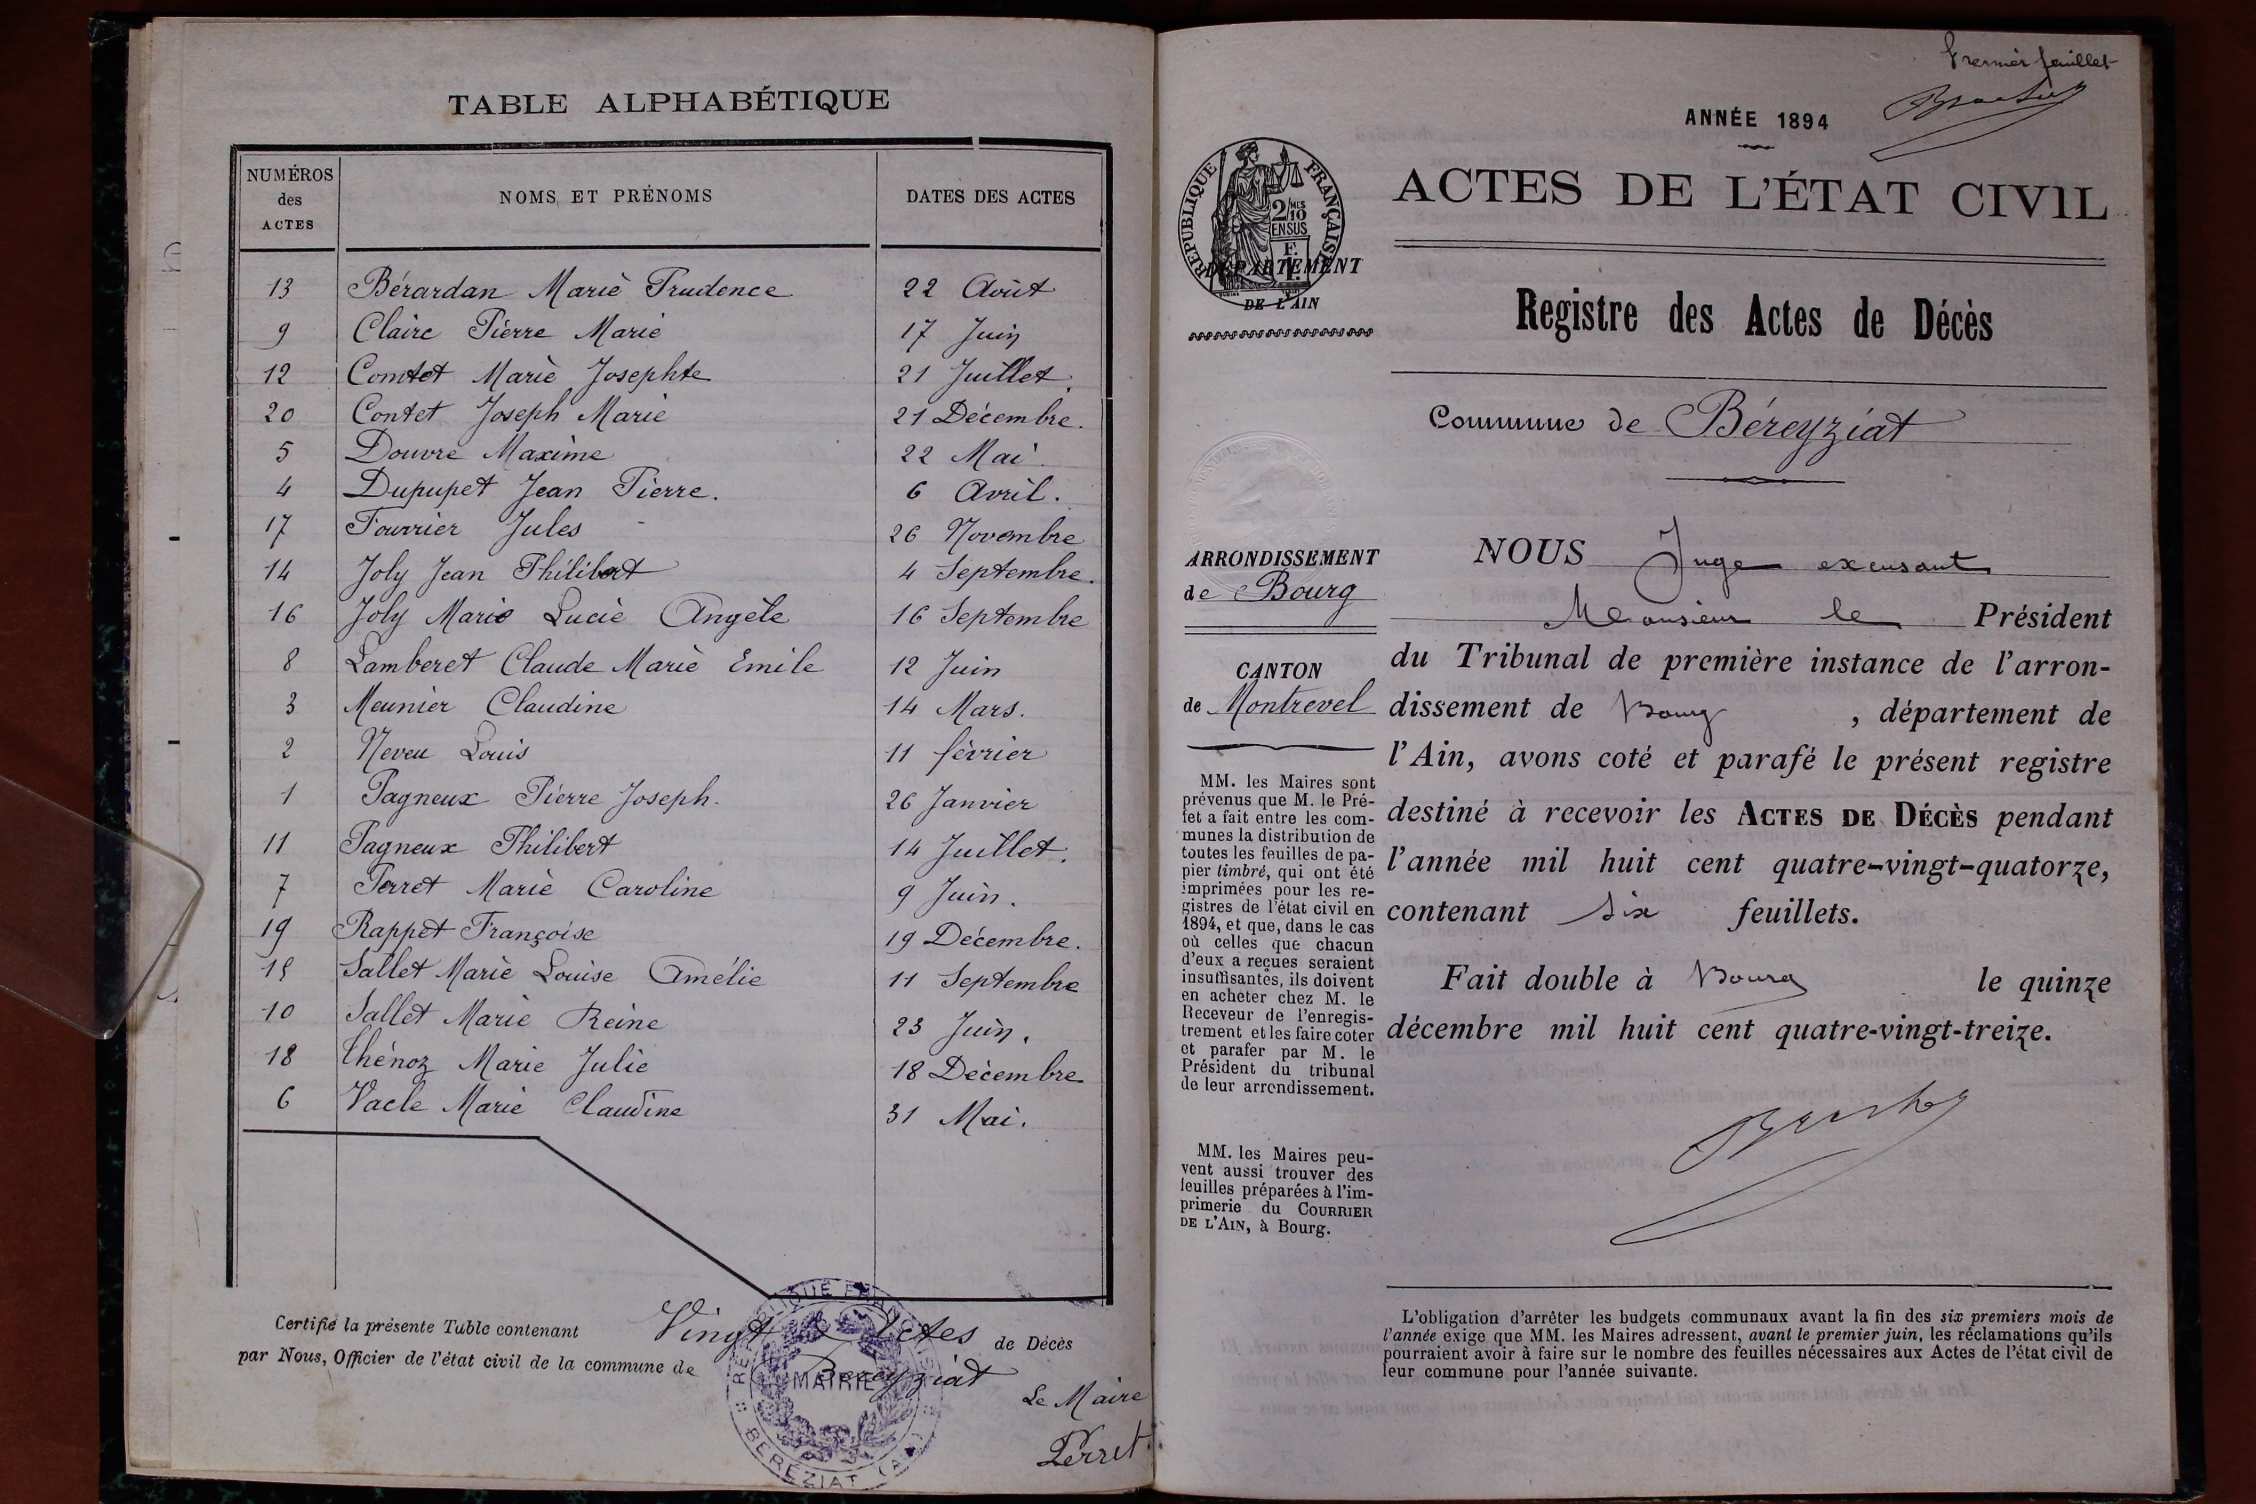 TABLE ALPHABÉTIQUE
NUMÉROS des ACTES
NOMS ET PRÉNOMS
DATES DES ACTES
13 Bérardan Marie Prudence 22 Août
9 Claire Pierre Marie 17 Juin
12 Comtet Marie Josephte 21 Juillet.
20 Contet Joseph Marie 21 Décembre.
5 Douvre Maxime 22 Mai
4 Dupupet Jean Pierre. 6 Avril.
17 Fourrier Jules 26 Novembre
14 Joly Jean Philibert 4 Septembre.
16 Joly Marie Lucie Angèle 16 Septembre
8 Lamberet Claude Marie Emile 12 Juin
3 Meunier Claudine 14 Mars.
2 Neveu Louis 11 février
1 Pagneux Pierre Joseph. 26 Janvier
11 Pagneux Philibert 14 Juillet.
7 Perret Marie Caroline 9 Juin.
19 Rappet Françoise 19 Décembre.
15 Sallet Marie Louise Amélie 11 Septembre
10 Sallet Marie Reine 23 Juin.
18 Thénoz Marie Julie 18 Décembre
6 Vacle Marie Claudine 31 Mai.
Certifié la présente Table contenant Vingt Actes de Décès
par Nous, Officier de l'état civil de la commune de Béreyziat
Le Maire
Perret
RÉPUBLIQUE FRANÇAISE
MAIRIE
BÉRÉZIAT (AIN)
Premier feuillet
ANNÉE 1894
ACTES DE L'ÉTAT CIVIL
RÉPUBLIQUE FRANÇAISE
2/10 MES
EN SUS
DÉPARTEMENT
DE L'AIN
Registre des Actes de Décès
Commune de Béreyziat
ARRONDISSEMENT
de Bourg
CANTON
de Montrevel
MM. les Maires sont
prévenus que M. le Pré-
fet a fait entre les com-
munes la distribution de
toutes les feuilles de pa-
pier timbré, qui ont été
imprimées pour les re-
gistres de l'état civil en
1894, et que, dans le cas
où celles que chacun
d'eux a reçues seraient
insuffisantes, ils doivent
en acheter chez M. le
Receveur de l'enregis-
trement et les faire coter
et parafer par M. le
Président du tribunal
de leur arrondissement.
MM. les Maires peu-
vent aussi trouver des
feuilles préparées à l'im-
primerie du COURRIER
DE L'AIN, à Bourg.
NOUS Juge excusant
Monsieur le Président
du Tribunal de première instance de l'arron-
dissement de Bourg, département de
l'Ain, avons coté et parafé le présent registre
destiné à recevoir les ACTES DE DÉCÈS pendant
l'année mil huit cent quatre-vingt-quatorze,
contenant six feuillets.
Fait double à Bourg le quinze
décembre mil huit cent quatre-vingt-treize.
L'obligation d'arrêter les budgets communaux avant la fin des six premiers mois de
l'année exige que MM. les Maires adressent, avant le premier juin, les réclamations qu'ils
pourraient avoir à faire sur le nombre des feuilles nécessaires aux Actes de l'état civil de
leur commune pour l'année suivante.